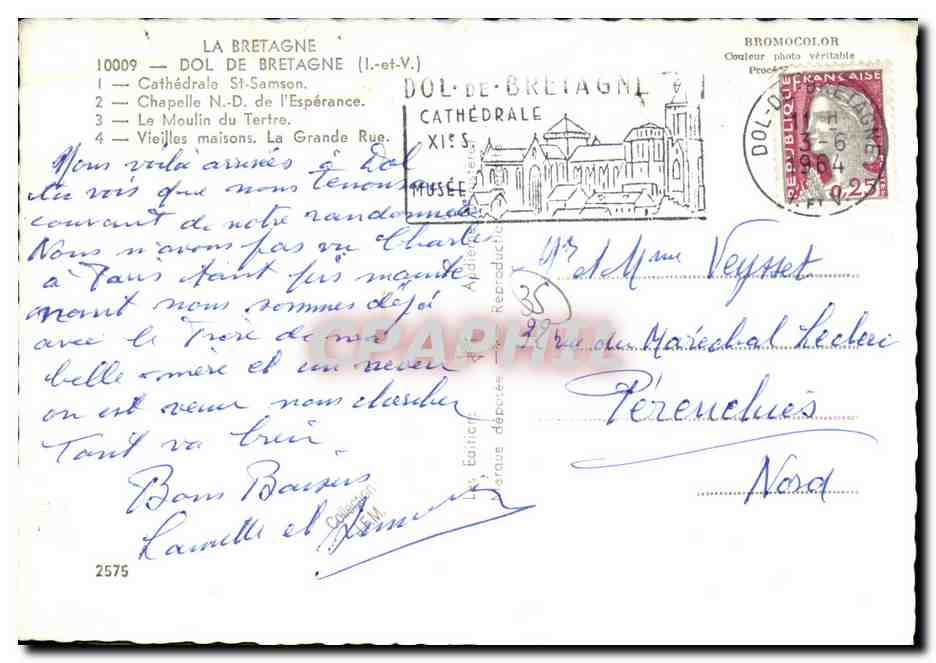 LA BRETAGNE
10009 — DOL DE BRETAGNE (I.-et-V.)
1 — Cathédrale St-Samson.
2 — Chapelle N.-D. de l'Espérance.
3 — Le Moulin du Tertre.
4 — Vieilles maisons. La Grande Rue.
BROMOCOLOR
Couleur photo véritable
DOL-DE-BRETAGNE
CATHÉDRALE
XIe S.
MUSÉE
REPUBLIQUE FRANÇAISE
0,25
DOL-DE-BRETAGNE
3-6
1964
Nous voila arrivés à Dol
tu vois que nous tenons au
courant de notre randonnée
Nous n'avons pas vu Charles
à Paris tant pis mainte
nant nous sommes déjà
avec le
belle-mère et un neveu
on est venu nous chercher
Tout va bien
Bons Baisers
et
Mr et Mme Veysset
35
22 rue du Maréchal Leclerc
Pérenchies
Nord
Les Editions
Marque déposée Reproduction
CPAPHIL
Collection
2575